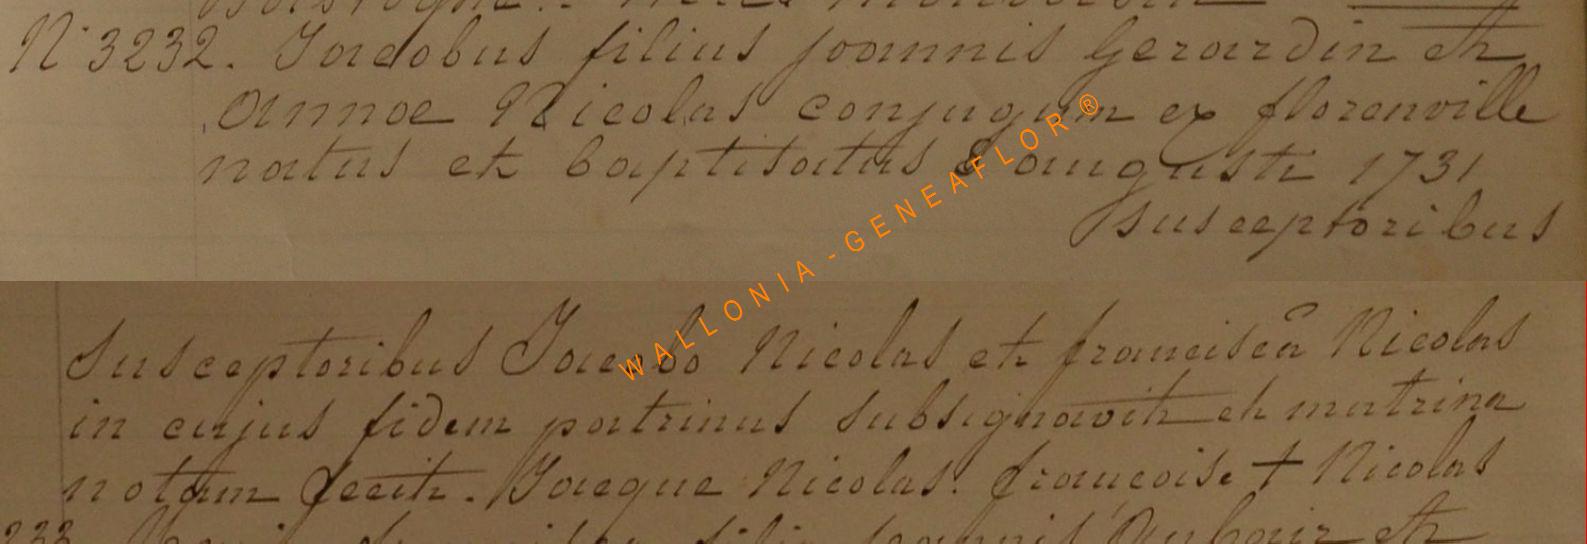 N° 3232. Jacobus filius joannis Gerardin et
annae Nicolas conjugum ex florenville
natus et baptisatus 8 augusti 1731
susceptoribus
Susceptoribus Jacobo Nicolas et francisca Nicolas
in cujus fidem patrinus subsignavit et matrina
notam fecit. Jacque Nicolas. francoise + Nicolas
233
filia joannis et
WALLONIA - GENEAFLOR ®